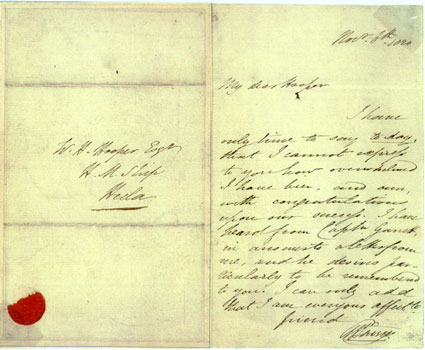 W. H. Hooper Esqr
H. M. Ship
Hecla
Novr. 6th 1820
My dear Hooper
I have
only time to say to day,
that I cannot express
to you how overwhelmed
I have been, and am,
with congratulations
upon our success. I have
heard from Captn
in answer to a letter from
me, and he desires par-
ticularly to be remembered
to you. I can only add
that I am ever yours affecte
friend